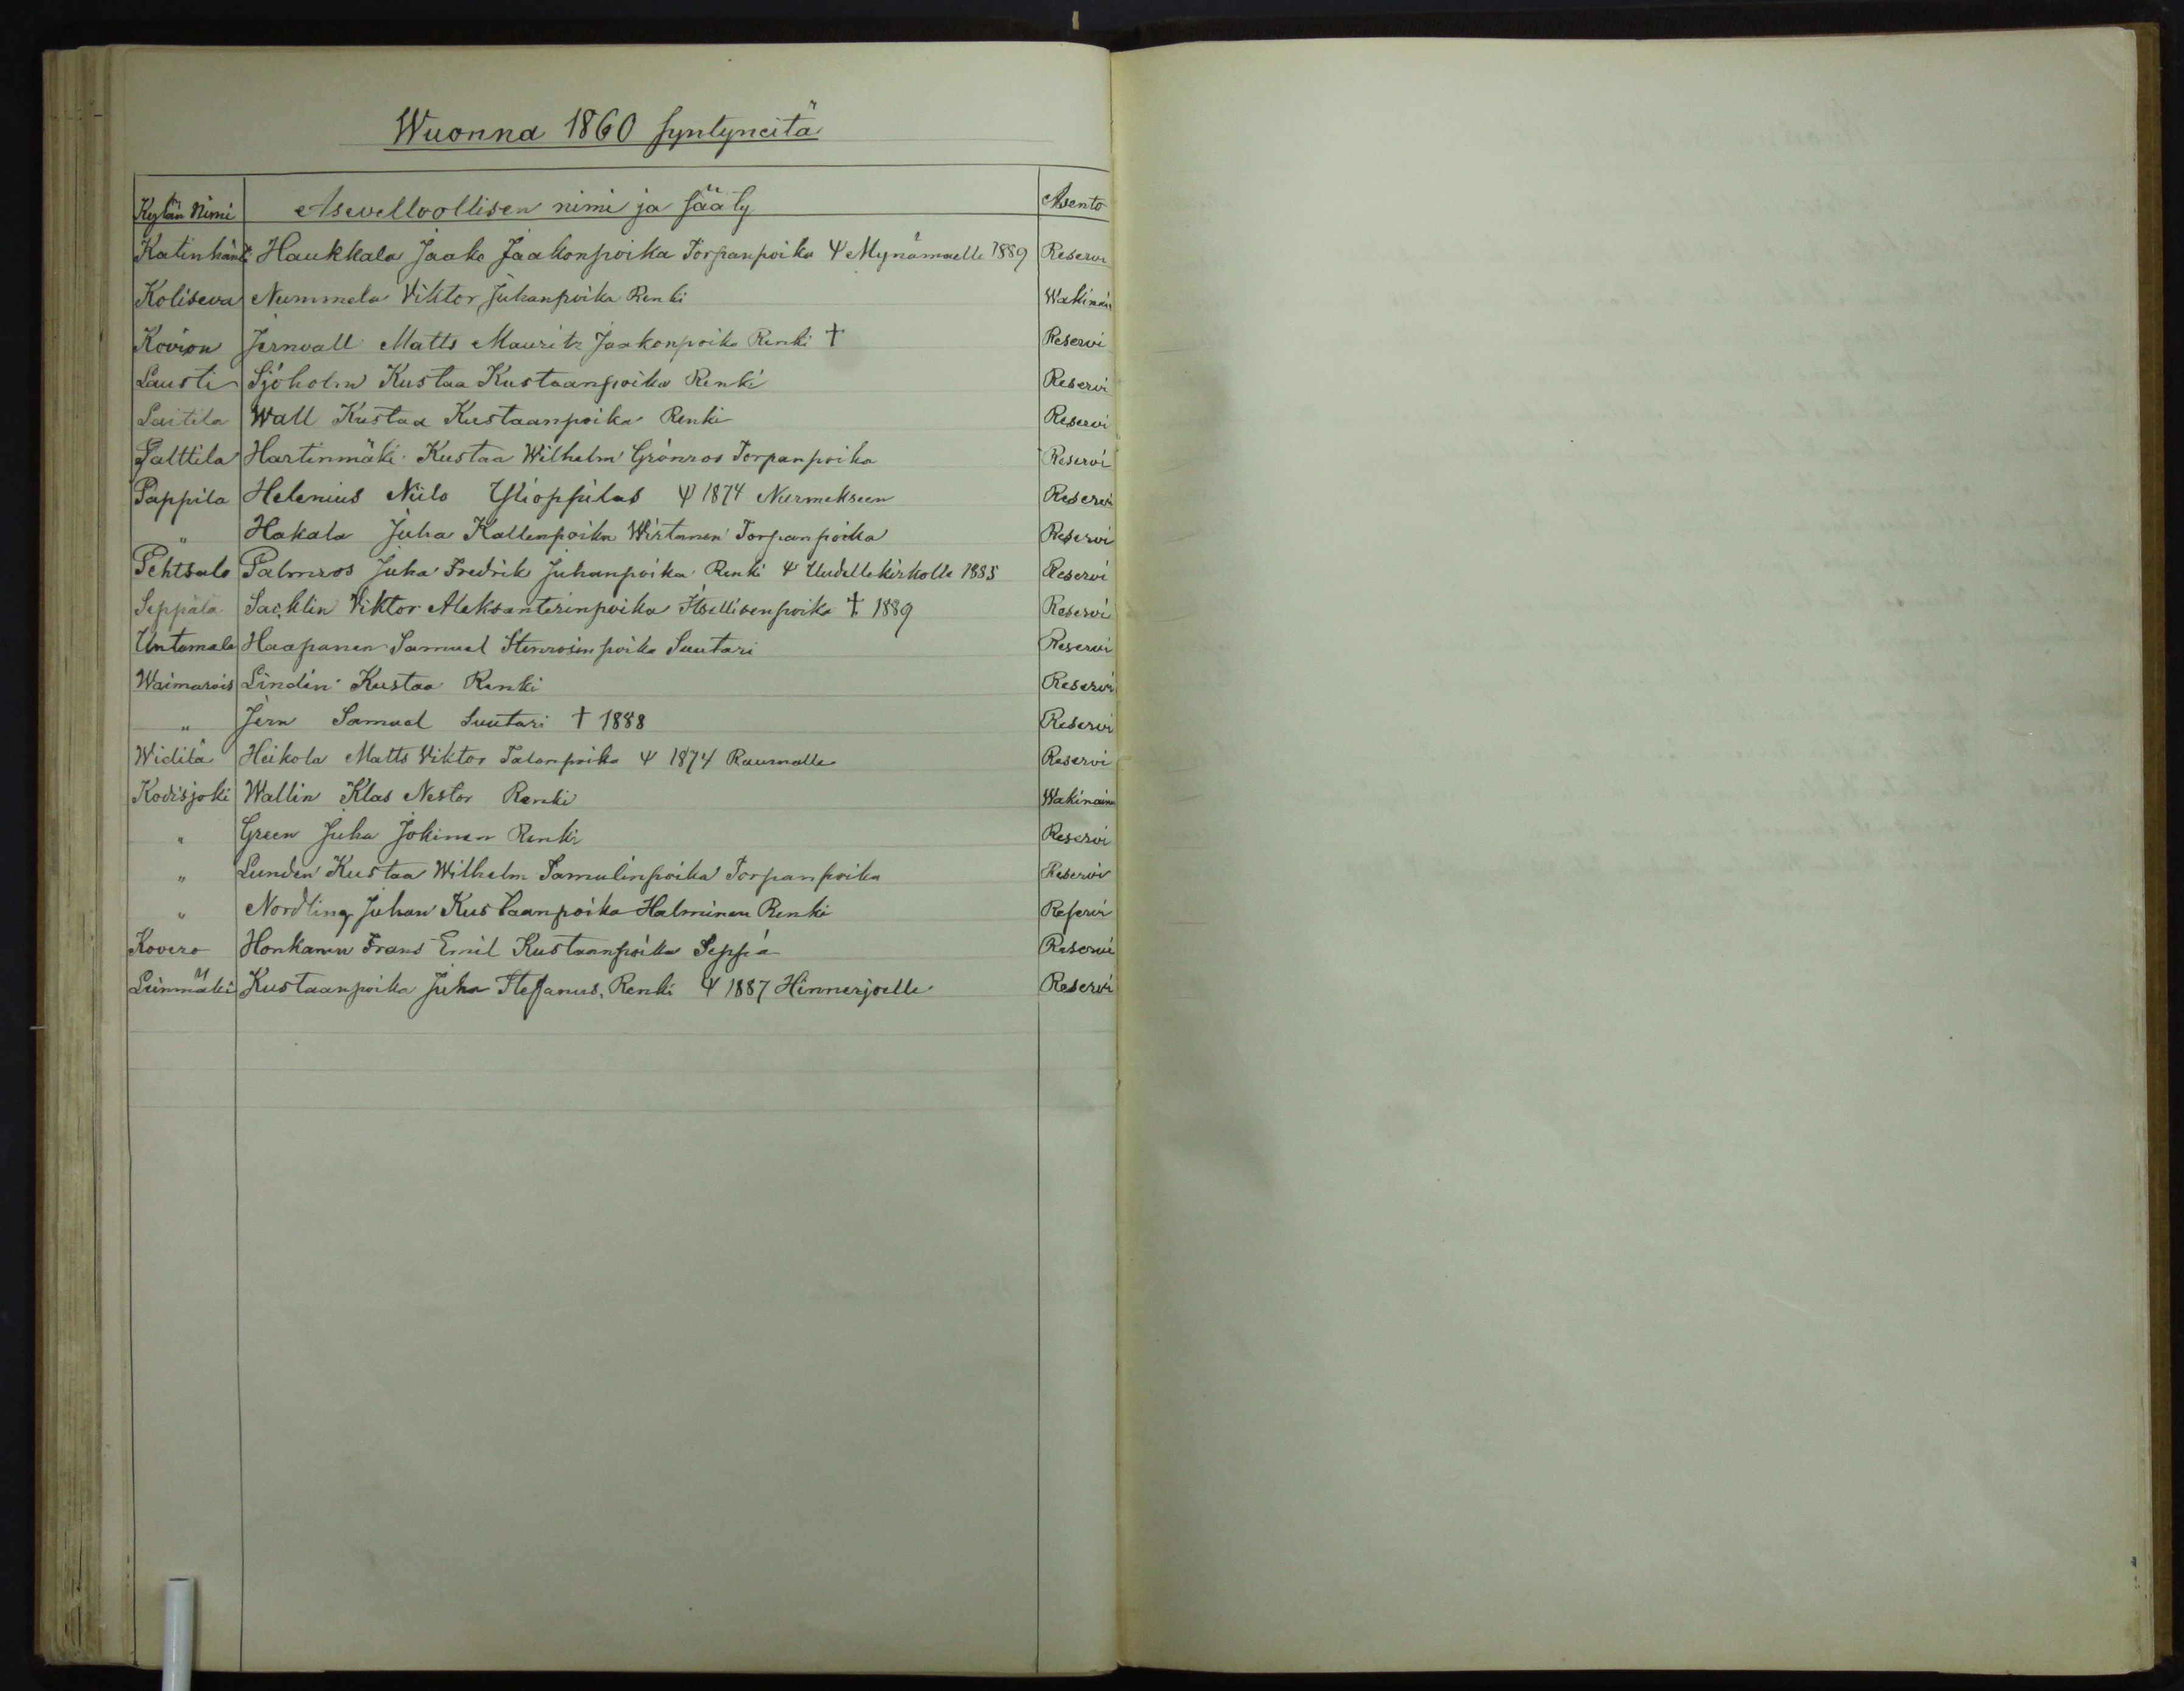 Wuonna 1860 syntyneitä
Kylän Nimi Asevelvollisen nimi ja sääty Asento
Katinhänt Haukkala Jaako Jaakonpoika Torpanpoika Ψ Mynämaelle 1889 Reservi
Koliseva Nummela Viktor Juhanpoika Renki Wakinain
Kovion Jernvall Matts Mauritz Jaakonpoika Renki † Reservi
Lausti Sjöholm Kustaa Kustaanpoika Renki Reservi
Laitila Wall Kustaa Kustaanpoika Renki Reservi
Palttila Hartinmäki Kustaa Wilhelm Grönros Torpanpoika Reservi
Pappila Helenius Niilo Ylioppilas Ψ 1874 Nurmekseen Reservi
" Hakala Juha Kallenpoika Wirtanen Torpanpoika Reservi
Pehtsalo Palmros Juha Fredrik Juhanpoika Renki Ψ Uudellekirkolle 1885 Reservi
Seppälä Säcklin Viktor Aleksanterinpoika Itsellisenpoika † 1889 Reservi
Untamala Haapanen Samuel Stenrosinpoika Suutari Reservi
Waimarois Lindin Kustaa Renki Reservi
" Jern Samuel Suutari † 1888 Reservi
Widilä Heikola Matts Viktor Talonpoika Ψ 1874 Raumalle Reservi
Kodisjoki Wallin Klas Nestor Renki Wakinain
" Green Juha Jokinen Renki Reservi
" Lunden Kustaa Wilhelm Samulinpoika Torpanpoika Reservi
" Nordling Juhan Kustaanpoika Halminen Renki Reservi
Kovero Honkanen Frans Emil Kustaanpoika Seppä Reservi
Leinmäki Kustaanpoika Juha Stefanus, Renki Ψ 1887 Hinnerjoelle Reservi